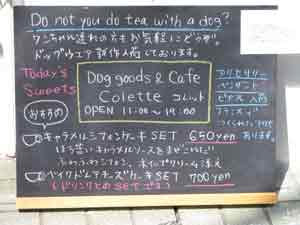 Do not you do tea with a dog?
ワンちゃん連れの方もお気軽にどうぞ!
ドッグウエア新作入荷しております。
Today's
Sweets
おすすめ
Dog goods & Cafe
Colette コレット
OPEN 11:00～19:00
アクセサリー
ペンダント
ピアス入荷
あります。
キャラメルシフォンケーキSET 650yen
ほろ苦いキャラメルソースを
ふわふわシフォン、ホイップクリーム添え
ベイクドチーズケーキSET 700yen
(ドリンクとのSETです)